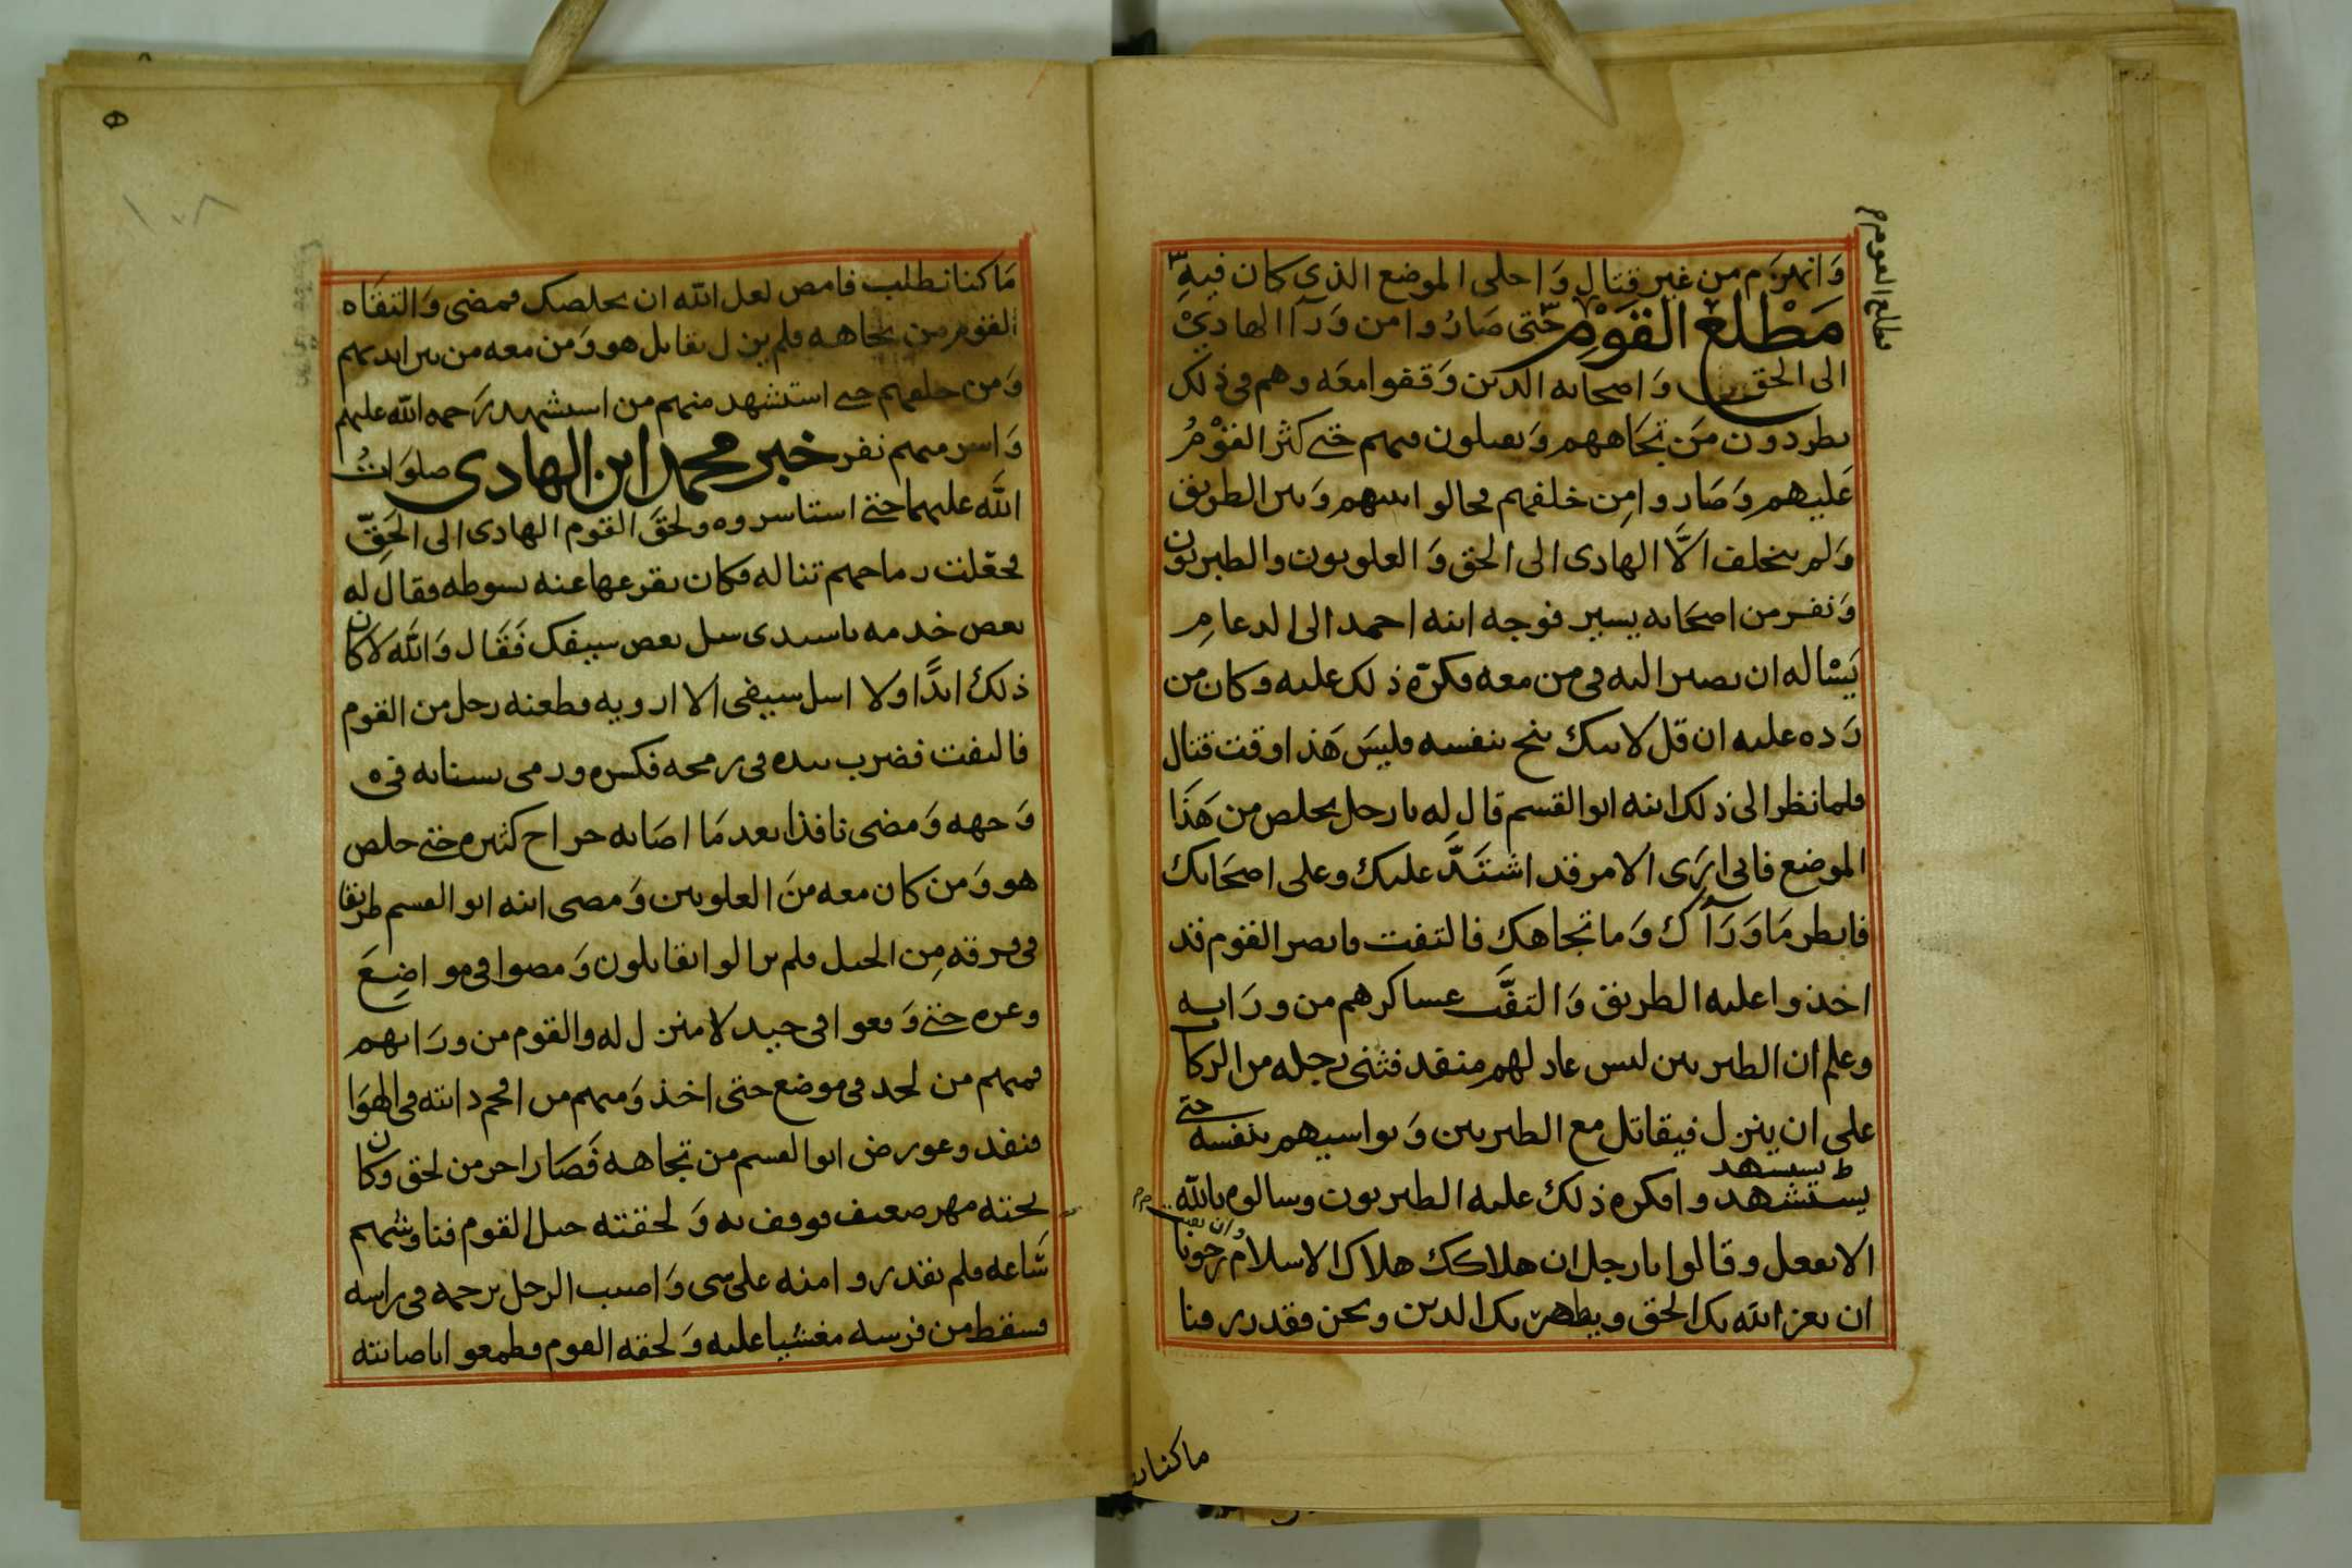 وَانهزَم من غير قتال وَاخلى الموضع الذي كان فيهِ
مَطْلع القَوْمِ حَتى صَارُوا من وَرَآ الهَادِيْ
الى الحق وَاصحابه الدين وَقفوا معَه وهم في ذلك
يطردون مَن تجَاههم وَيقبلون منهم حتى كثر القوْمُ
عَليهم وَصَاروا مِن خلفهم فحالوا بينهم وَبين الطريق
وَلم يتخلف الَّا الهادى الى الحق وَالعلويون والطبريون
وَنفر من اصحَابه يسير فوجه ابنه احمد الى الدعامِ
يَسْاله ان يصير اليه في من معه فكرَه ذلك عليه وكان من
رَده عليه ان قل لابيك ينج بنفسه فليسَ هَذا وقت قتال
فلما نظر الى ذلك ابنه ابوالقسم قال له يا رجل تخلص من هَذا
الموضع فاني ارَى الامر قد اشتَدَّ عليك وعلى اصحَابك
فانظر مَا وَرَآك وَما تجاهك فالتفت فابصر القوم قد
اخذوا عليه الطريق وَالتفَّت عساكرهم من ورَايه
وعلم ان الطبريين ليس عاد لهم منفد فثنى رجله من الركاب
على ان ينزل فيقاتل مع الطبريين وَيواسيهم بنفسه حتى
ط يستشهد
يستشهد وافكره ذلك عليه الطبريون وسالوه بالله
الا يفعل وقالوا يا رجل ان هلاكك هلاك الاسلام رجونا
ان يعز الله بك الحق ويظهر بك الدين ونحن فقد درفنا
مطلع القوم
ما كنا نـ
١٠٨
مَا كنا نطلب فامض لعل الله ان يخلصك فمضى وَالتقَاه
القوم من تجاهه فلم يزل يقاتل هو وَمن معه من بين ايديهم
وَمن خلفهم حتى استشهد منهم من استشهد رَحمه الله عليهم
وَاسر منهم نفر خبر محمد ابن الهادى صلوَاتُ
الله عليهما حتى استاسروه ولحقَ القوم الهادى الى الحَقِّ
فجعَلت رماحهم تناله فكان يقرعها عنه بسوطه فقال له
بعض خدمه يا سيدى سل بعض سيفك فَقَال وَاللَّه لا كان
ذلك ابدًا ولا اسل سيفى الا ارويه فطعنه رجل من القوم
فالتفت فضرب بيده في رمحه فكسره ورمى بسنانه في
وَجهه وَمضى نافذا بعد مَا اصَابه جراح كثيره حتى خلص
هو وَمن كان معه منَ العلويين وَمضى ابنه ابو القسم طريقا
في فرقه مِن الخيل فلم يزالوا يقاتلون وَمضوا في مواضِعَ
وعره حتى وَقعوا في حيد لا منزل له والقوم من ورَايهم
فمنهم من لحد في موضع حتى اخذ وَمنهم من اقحم دابته في الهوَا
فنفد وعورض ابو القسم من تجاهه فَصَار اخر من لحق وكان
تحته مهر ضعيف فوقف به وَلحقته خيل القوم فناوشهم
سَّاعه فلم يقدروا منه على شى وَاصيب الرجل برجمه في راسه
فسقط من فرسه مغشيا عليه وَلحقه القوم فطمعوا باصابته